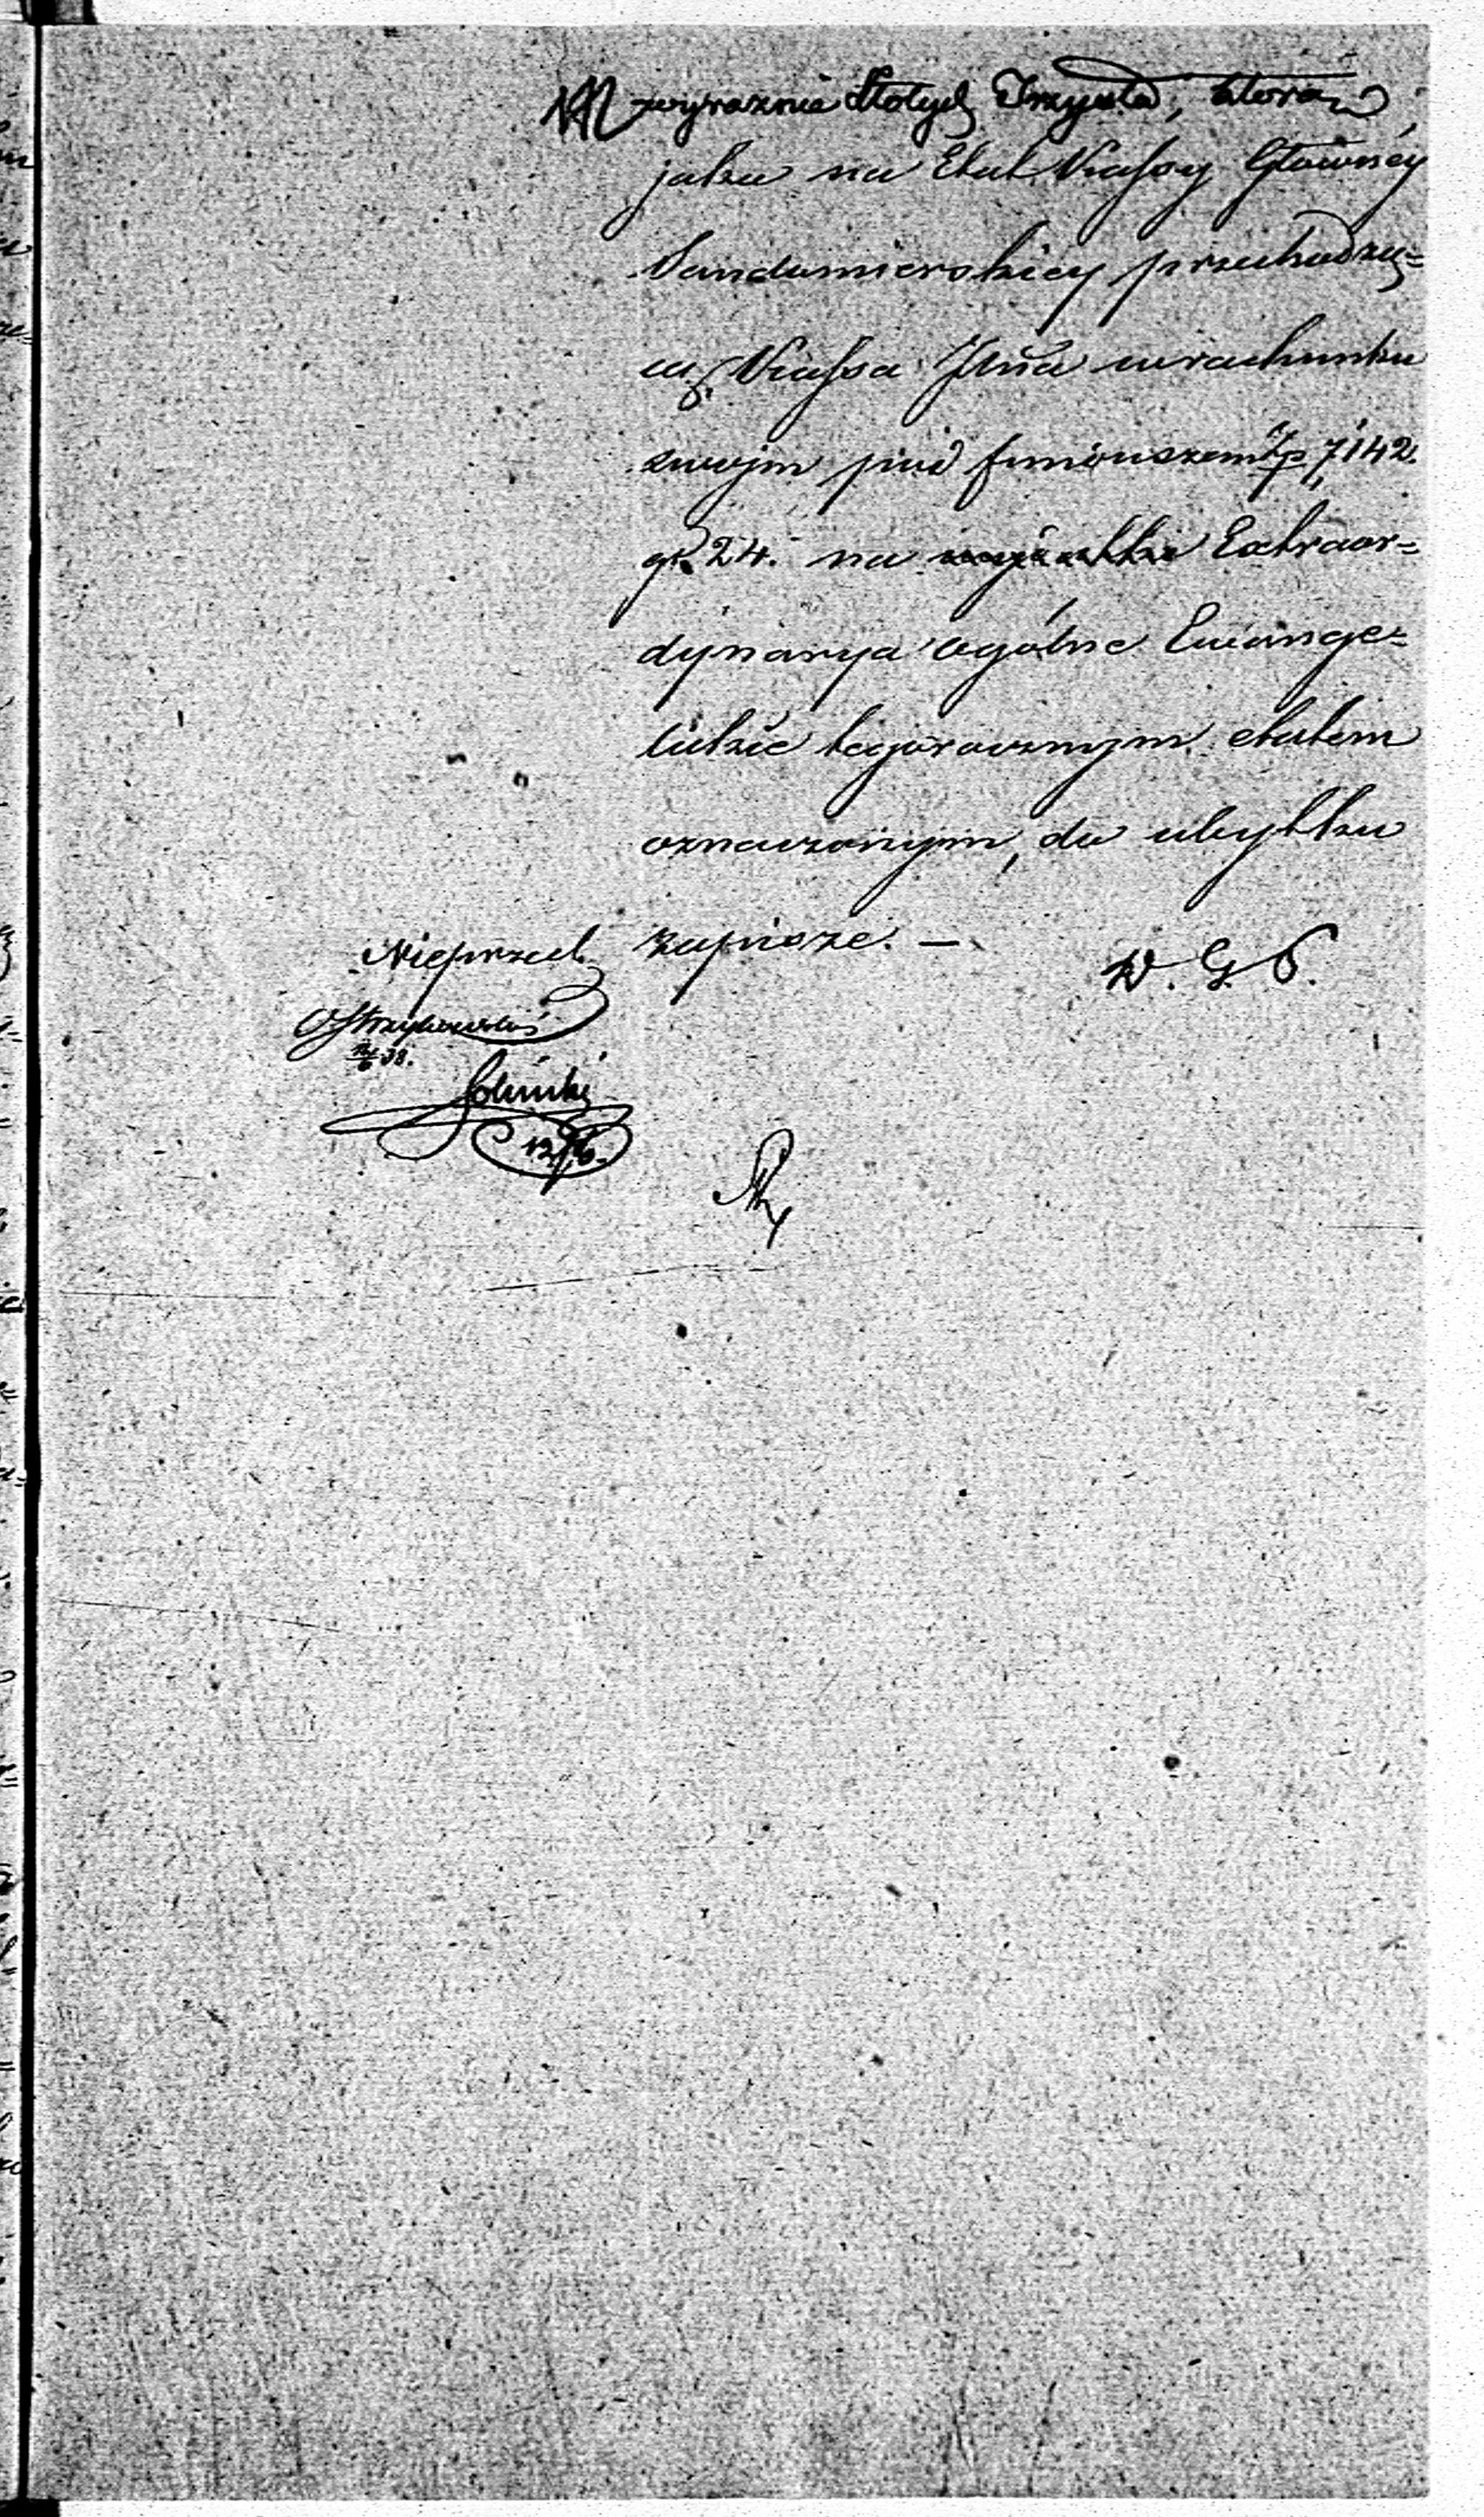 wyraznie Złotych Trzysta, którą
jako na Etat Kassy Głównéy
Sandomierskiey przechodzą=
cą, Kassa Jlna w rachunku
swojm pod funduszem Zp 7,142.
gr. 24. na wydatki Extraor=
dynarya ogólne Ewange=
lickie tegorocznym etatem
oznaczonym, do ubytku
zapisze. —
W. G. P.
Nieprzech
Ostrzykowski
12/6 38.
Soliński
12/6.